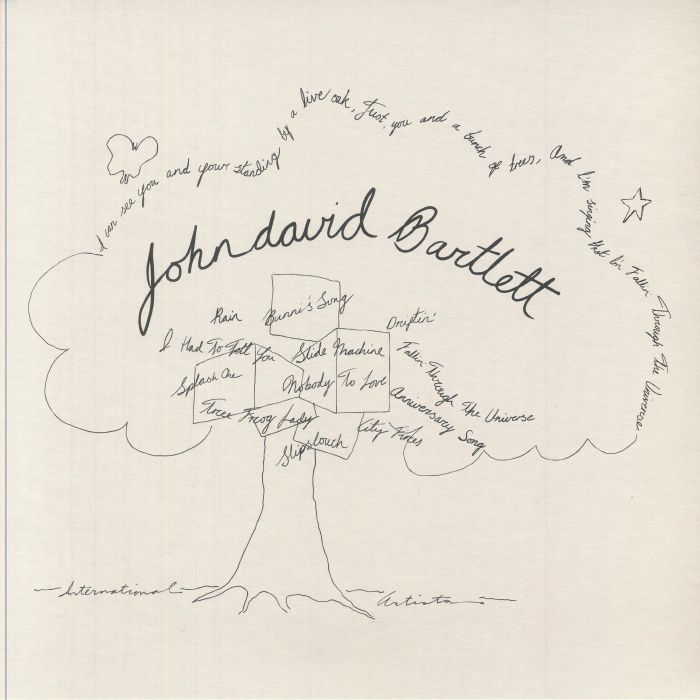 I can see you and your standing by a live oak, Just you and a bunch of trees, And I'm singing that I'm Fallin' Through The Universe
John david Bartlett
Rain
Bunni's Song
Driftin'
I Had To Tell You
Slide Machine
Splash One
Nobody To Love
Fallin Through The Universe
Tree Frog Lady
Anniversary Song
Slipslouch
City Fires
International Artists